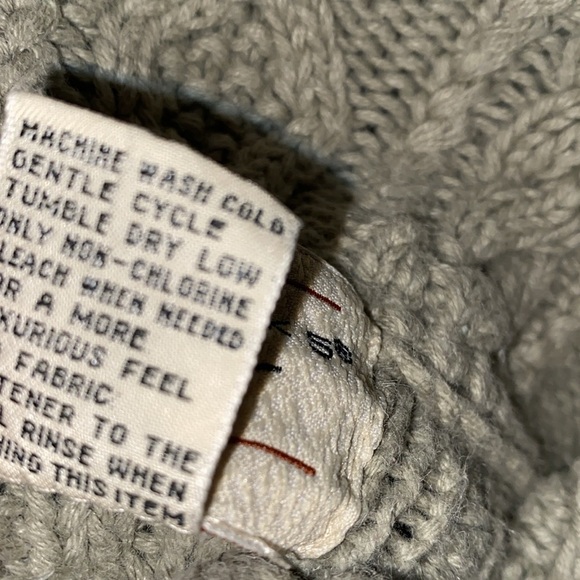 MACHINE WASH COLD
GENTLE CYCLE
TUMBLE DRY LOW
ONLY NON-CHLORINE
LEACH WHEN NEEDED
OR A MORE
XURIOUS FEEL
FABRIC
TENER TO THE
L RINSE WHEN
HING THIS ITEM